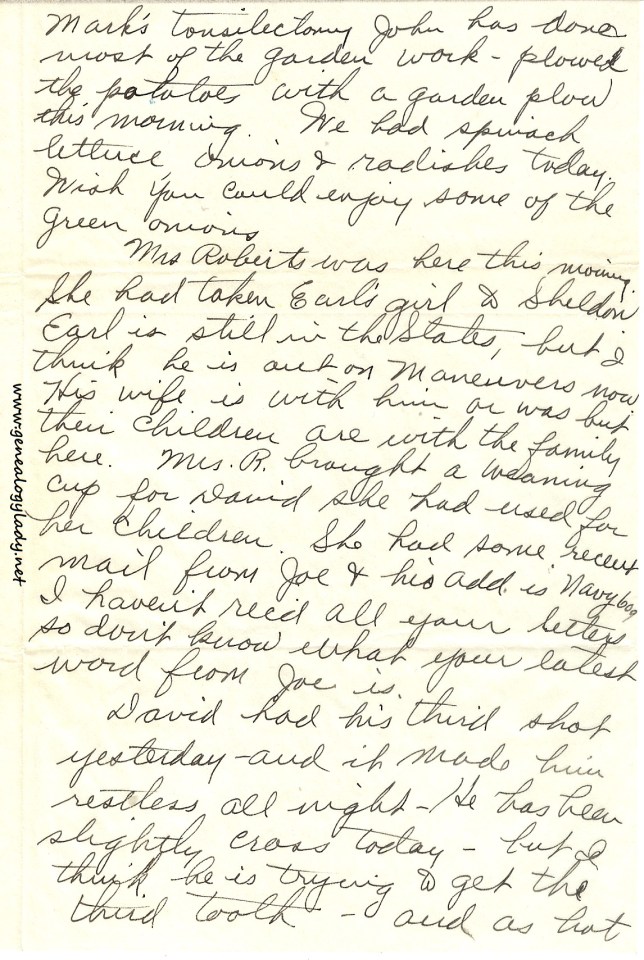 Mark's tonsilectomy John has done
most of the garden work - plowed
the potatoes with a garden plow
this morning. We had spinach
lettuce onions & radishes today.
Wish you could enjoy some of the
green onions
Mrs Roberts was here this morning.
She had taken Earl's girl to Sheldon
Earl is still in the States, but I
think he is out on maneuvers now
His wife is with him or was but
their children are with the family
here. Mrs. R. brought a weaning
cup for David she had used for
her children. She had some recent
mail from Joe & his add. is Navy 609
I haven't rec'd all your letters
so don't know what your latest
word from Joe is.
David had his third shot
yesterday - and it made him
restless all night - He has been
slightly cross today - but I
think he is trying to get the
third tooth - and as hot
www.genealogylady.net